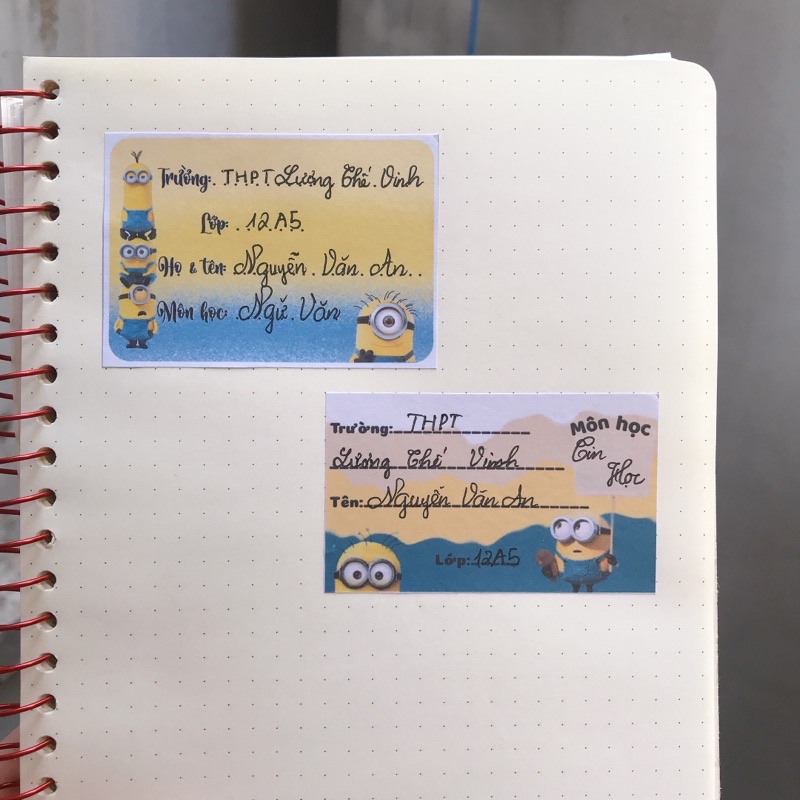 Trường: THPT Lương Thế Vinh
Lớp: 12A5
Họ & tên: Nguyễn Văn An
Môn học: Ngữ Văn
Trường: THPT
Lương Thế Vinh
Môn học
Tin
Học
Tên: Nguyễn Văn An
Lớp: 12A5